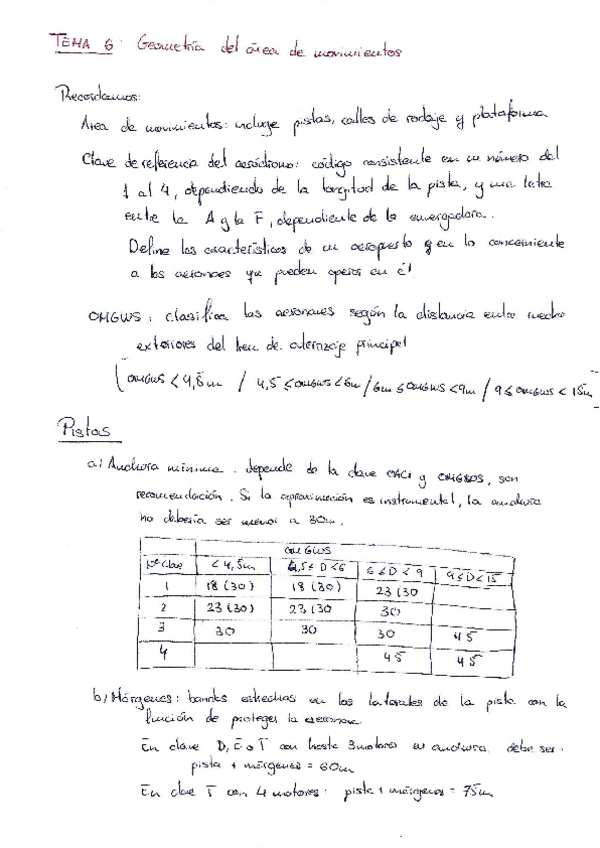 TEMA 6: Geometría del área de movimientos
Recordamos:
Area de movimientos: incluye pistas, calles de rodaje y plataforma
Clave de referencia del aeródromo: código consistente en un número del
1 al 4, dependiendo de la longitud de la pista, y una letra
entre la A y la F, dependiente de la envergadura.
Define las características de un aeropuerto en lo concerniente
a las aeronaves que pueden operar en él
OMGWS: clasifica las aeronaves según la distancia entre ruedas
exteriores del tren de aterrizaje principal
(OMGWS < 4,5m / 4,5 ≤ OMGWS < 6m / 6m ≤ OMGWS < 9m / 9 ≤ OMGWS < 15m
Pistas
a) Anchura mínima: depende de la clave OACI y OMGWS, son
recomendación. Si la aproximación es instrumental, la anchura
no debería ser menor a 30m.
OMGWS
Nº clave < 4,5m 4,5 ≤ D < 6 6 ≤ D < 9 9 ≤ D < 15
1 18 (30) 18 (30) 23 (30
2 23 (30) 23 (30 30
3 30 30 30 45
4 45 45
b) Márgenes: bandas estrechas en los laterales de la pista con la
función de proteger la aeronave
En clave D, E o F con hasta 3 motores su anchura debe ser:
pista + márgenes = 60m
En clave F con 4 motores: pista + márgenes = 75m